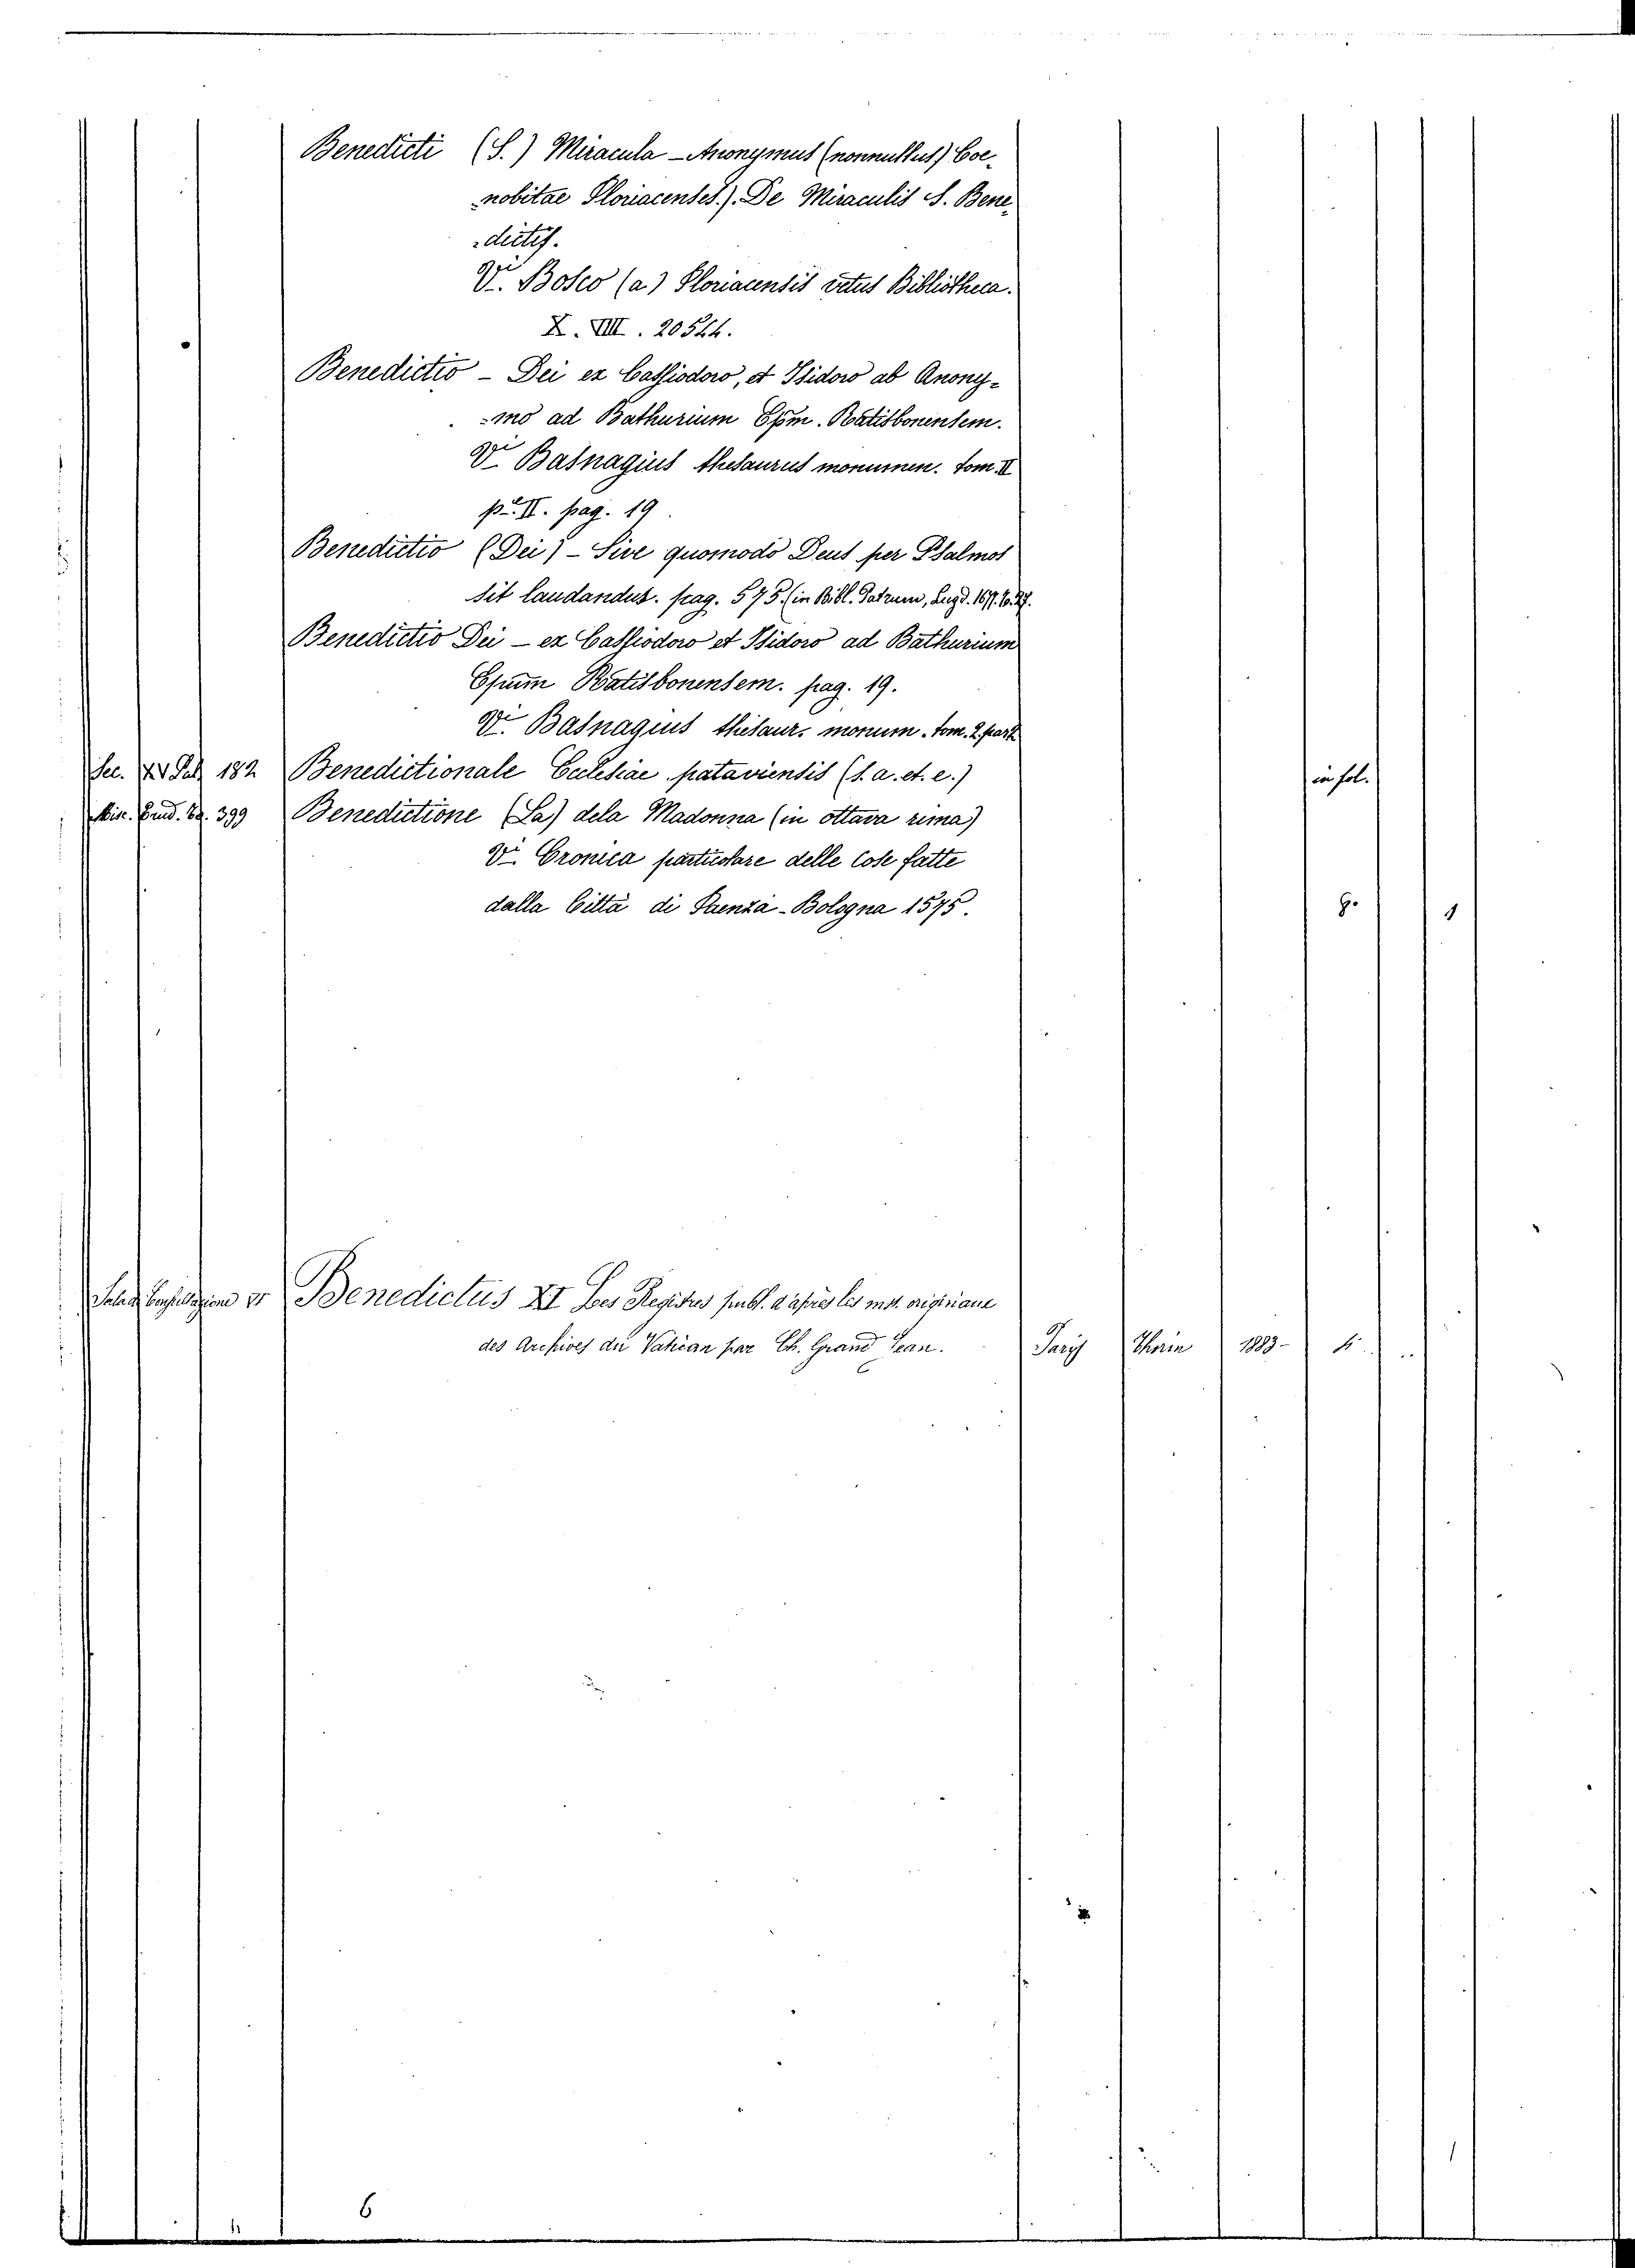 Benedicti (S.) Miracula - Anonymus (nonnullus) Coe-
-nobitae Floriacenses.). De Miraculis S. Bene-
-dictis.
Vi. Bosco (a) Floriacensis vetus Bibliotheca.
X. VIII. 20544.
Benedictio - Dei ex Cassiodoro, et Isidoro ab Anony-
-mo ad Bathurium Epm. Ratisbonensem.
Vi Basnagius thesaurus monumen. tom. II
p. II. pag. 19.
Benedictio (Dei) - Sive quomodo Deus per Psalmos
sit laudandus. pag. 575. (in Bibl. Patrum, Lugd. 1677. to. 27.
Benedictio Dei - ex Cassiodoro et Isidoro ad Bathurium
Epum Ratisbonensem. pag. 19.
Vi. Basnagius thesaur. monum. tom. 2. part
Sec. XV 182 Benedictionale Ecclesiae pataviensis (s. a. et. e.) in fol.
Misc. 399 Benedictione (La) dela Madonna (in ottava rima)
Vi. Cronica particolare delle Cose fatte
dalla Città di Faenza - Bologna 1575. 8. 1
Sala Consultazione Benedictus XI Les Registres publ. d'après les mst. originaux
des Archives du Vatican par Ch. Grand Jean. Paris Thorin 1883-
6